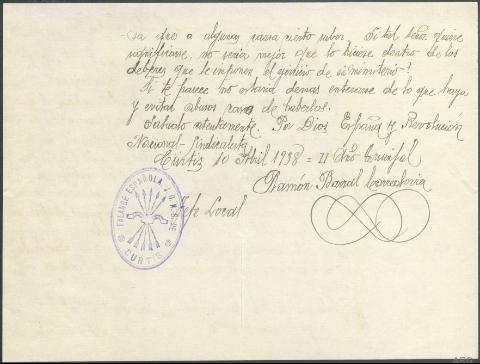 sa que a algunas parra cierto sabor. Si tal Señor quiere
significarse, no seria mejor que lo hiciese dentro de los
deberes que le imponen el ejercicio de su ministerio?
Si te parece no estaria demas enterarse de lo que haya
y evitar abusos caso de haberlos.
Saludo atentamente. Por Dios España y Revolución
Nacional-Sindicalista
Curtis 10 Abril 1938 = II Año Triunfal
Ramón Barral
Jefe Local
FALANGE ESPAÑOLA J.O.N.S. DE
CURTIS